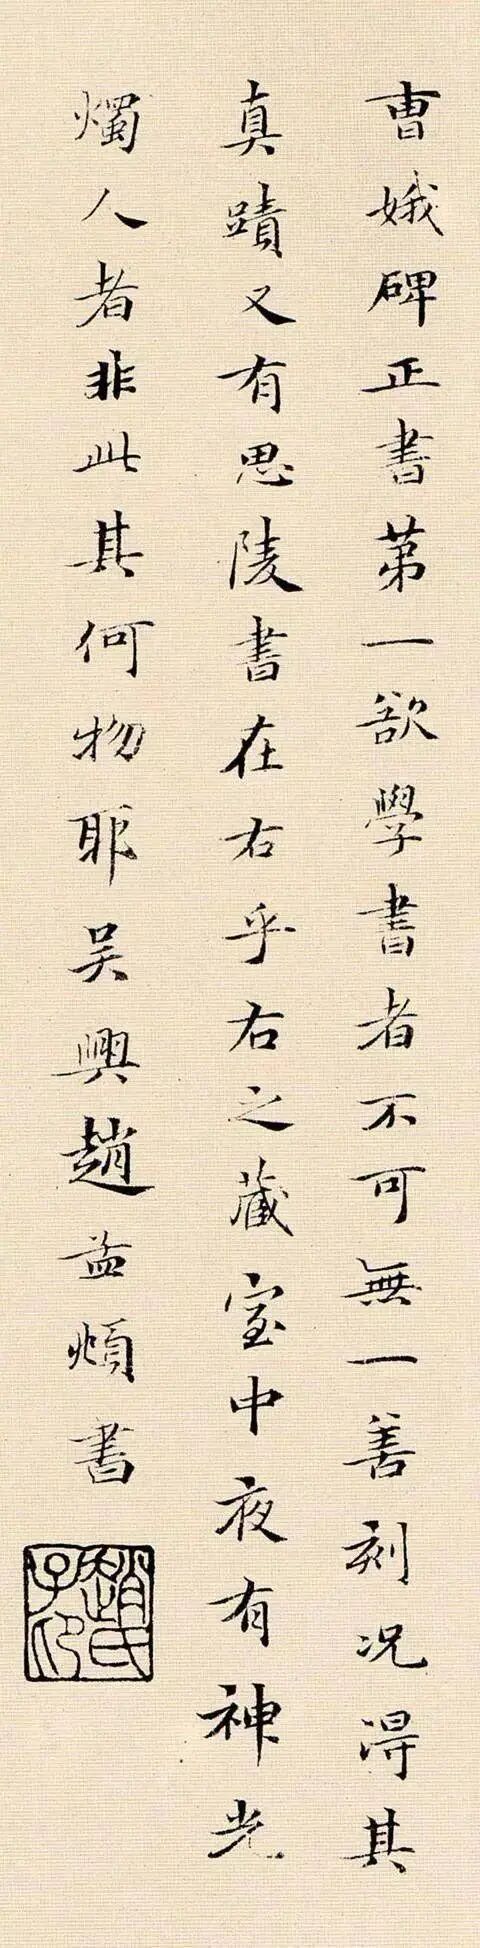 曹娥碑正書第一欲學書者不可無一善刻況得其
真蹟又有思陵書在右乎右之藏室中夜有神光
燭人者非此其何物耶吴興趙孟頫書
趙氏子印